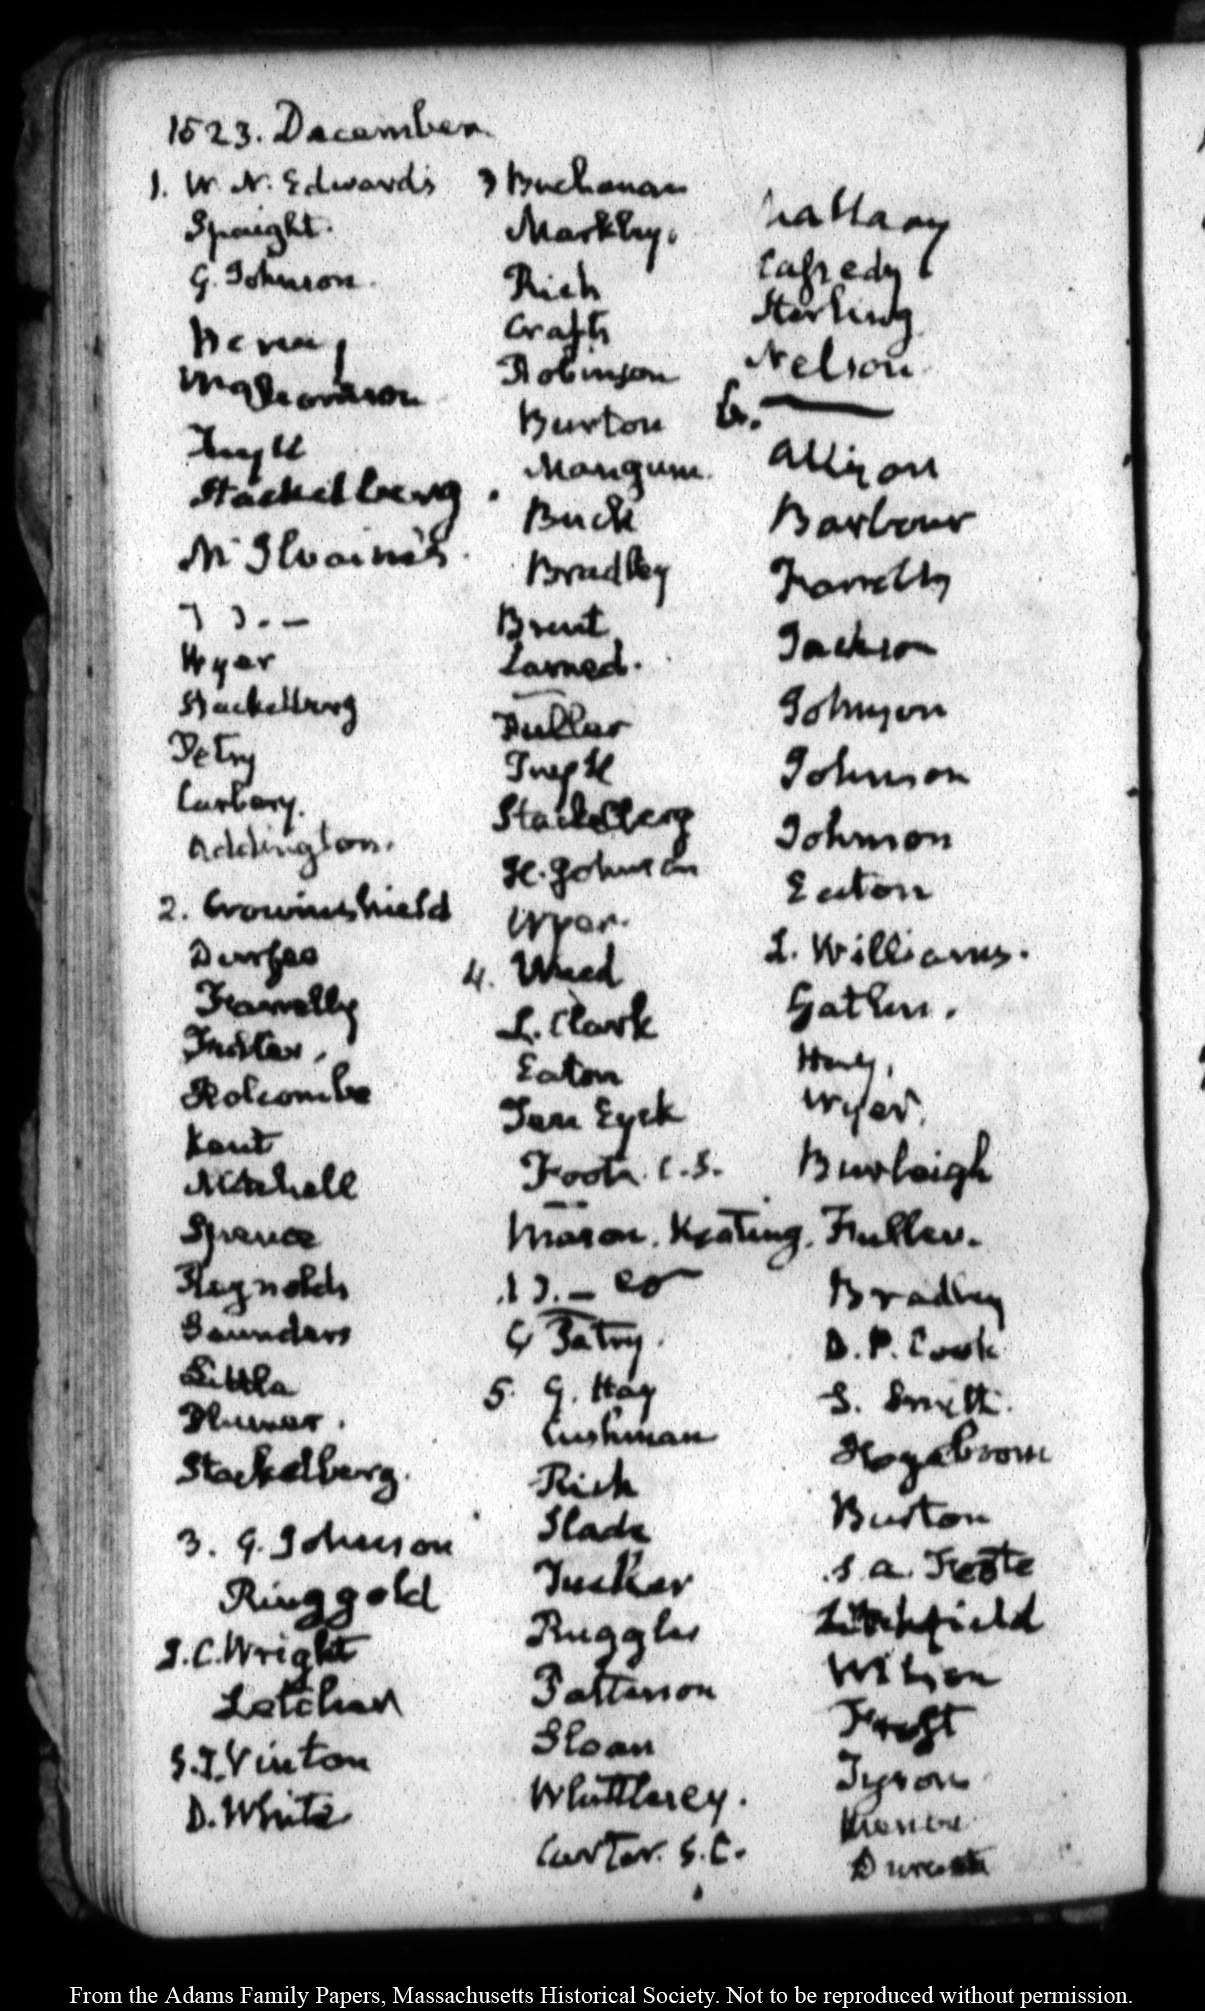 1823. December
1. W. N. Edwards
Spaight.
G. Johnson.
Henry
Stackelberg
McIlvaine's
Wyer
Stackelberg
Petry
Carbery.
Addington.
2. Crowninshield
Durfee
Farrelly
Foster.
Holcombe
Kent
Mitchell
Spence
Reynolds
Saunders
Little
Plumer.
Stackelberg.
3. G. Johnson
Ringgold
J. C. Wright
Letcher
S. F. Vinton
D. White
3 Buchanan
Markley.
Rich
Crafts
Robinson
Burton
Mangum.
Buck
Bradley
Brent
Larned.
Fuller
Tuyll
Stackelberg
Johnson
Wyer.
4. Weed
L. Clark
Eaton
Ten Eyck
Foote. C. S.
Mason. Keating. Fuller.
& Petry.
5. G. Hay
Cushman
Rich
Slade
Tucker
Ruggles
Patterson
Sloan
Whittlesey.
Carter. S. C.
Mallary
Cassedy
Sterling
Nelson
6.
Allison
Barbour
Farrelly
Jackson
Johnson
Johnson
Johnson
Eaton
L. Williams.
Gatlin.
Hay.
Wyer.
Burleigh
Bradley
D. P. Cook
S. Smith.
Hogeboom
Burton
S. A. Foote
Litchfield
Wilson
Frost
Tyson